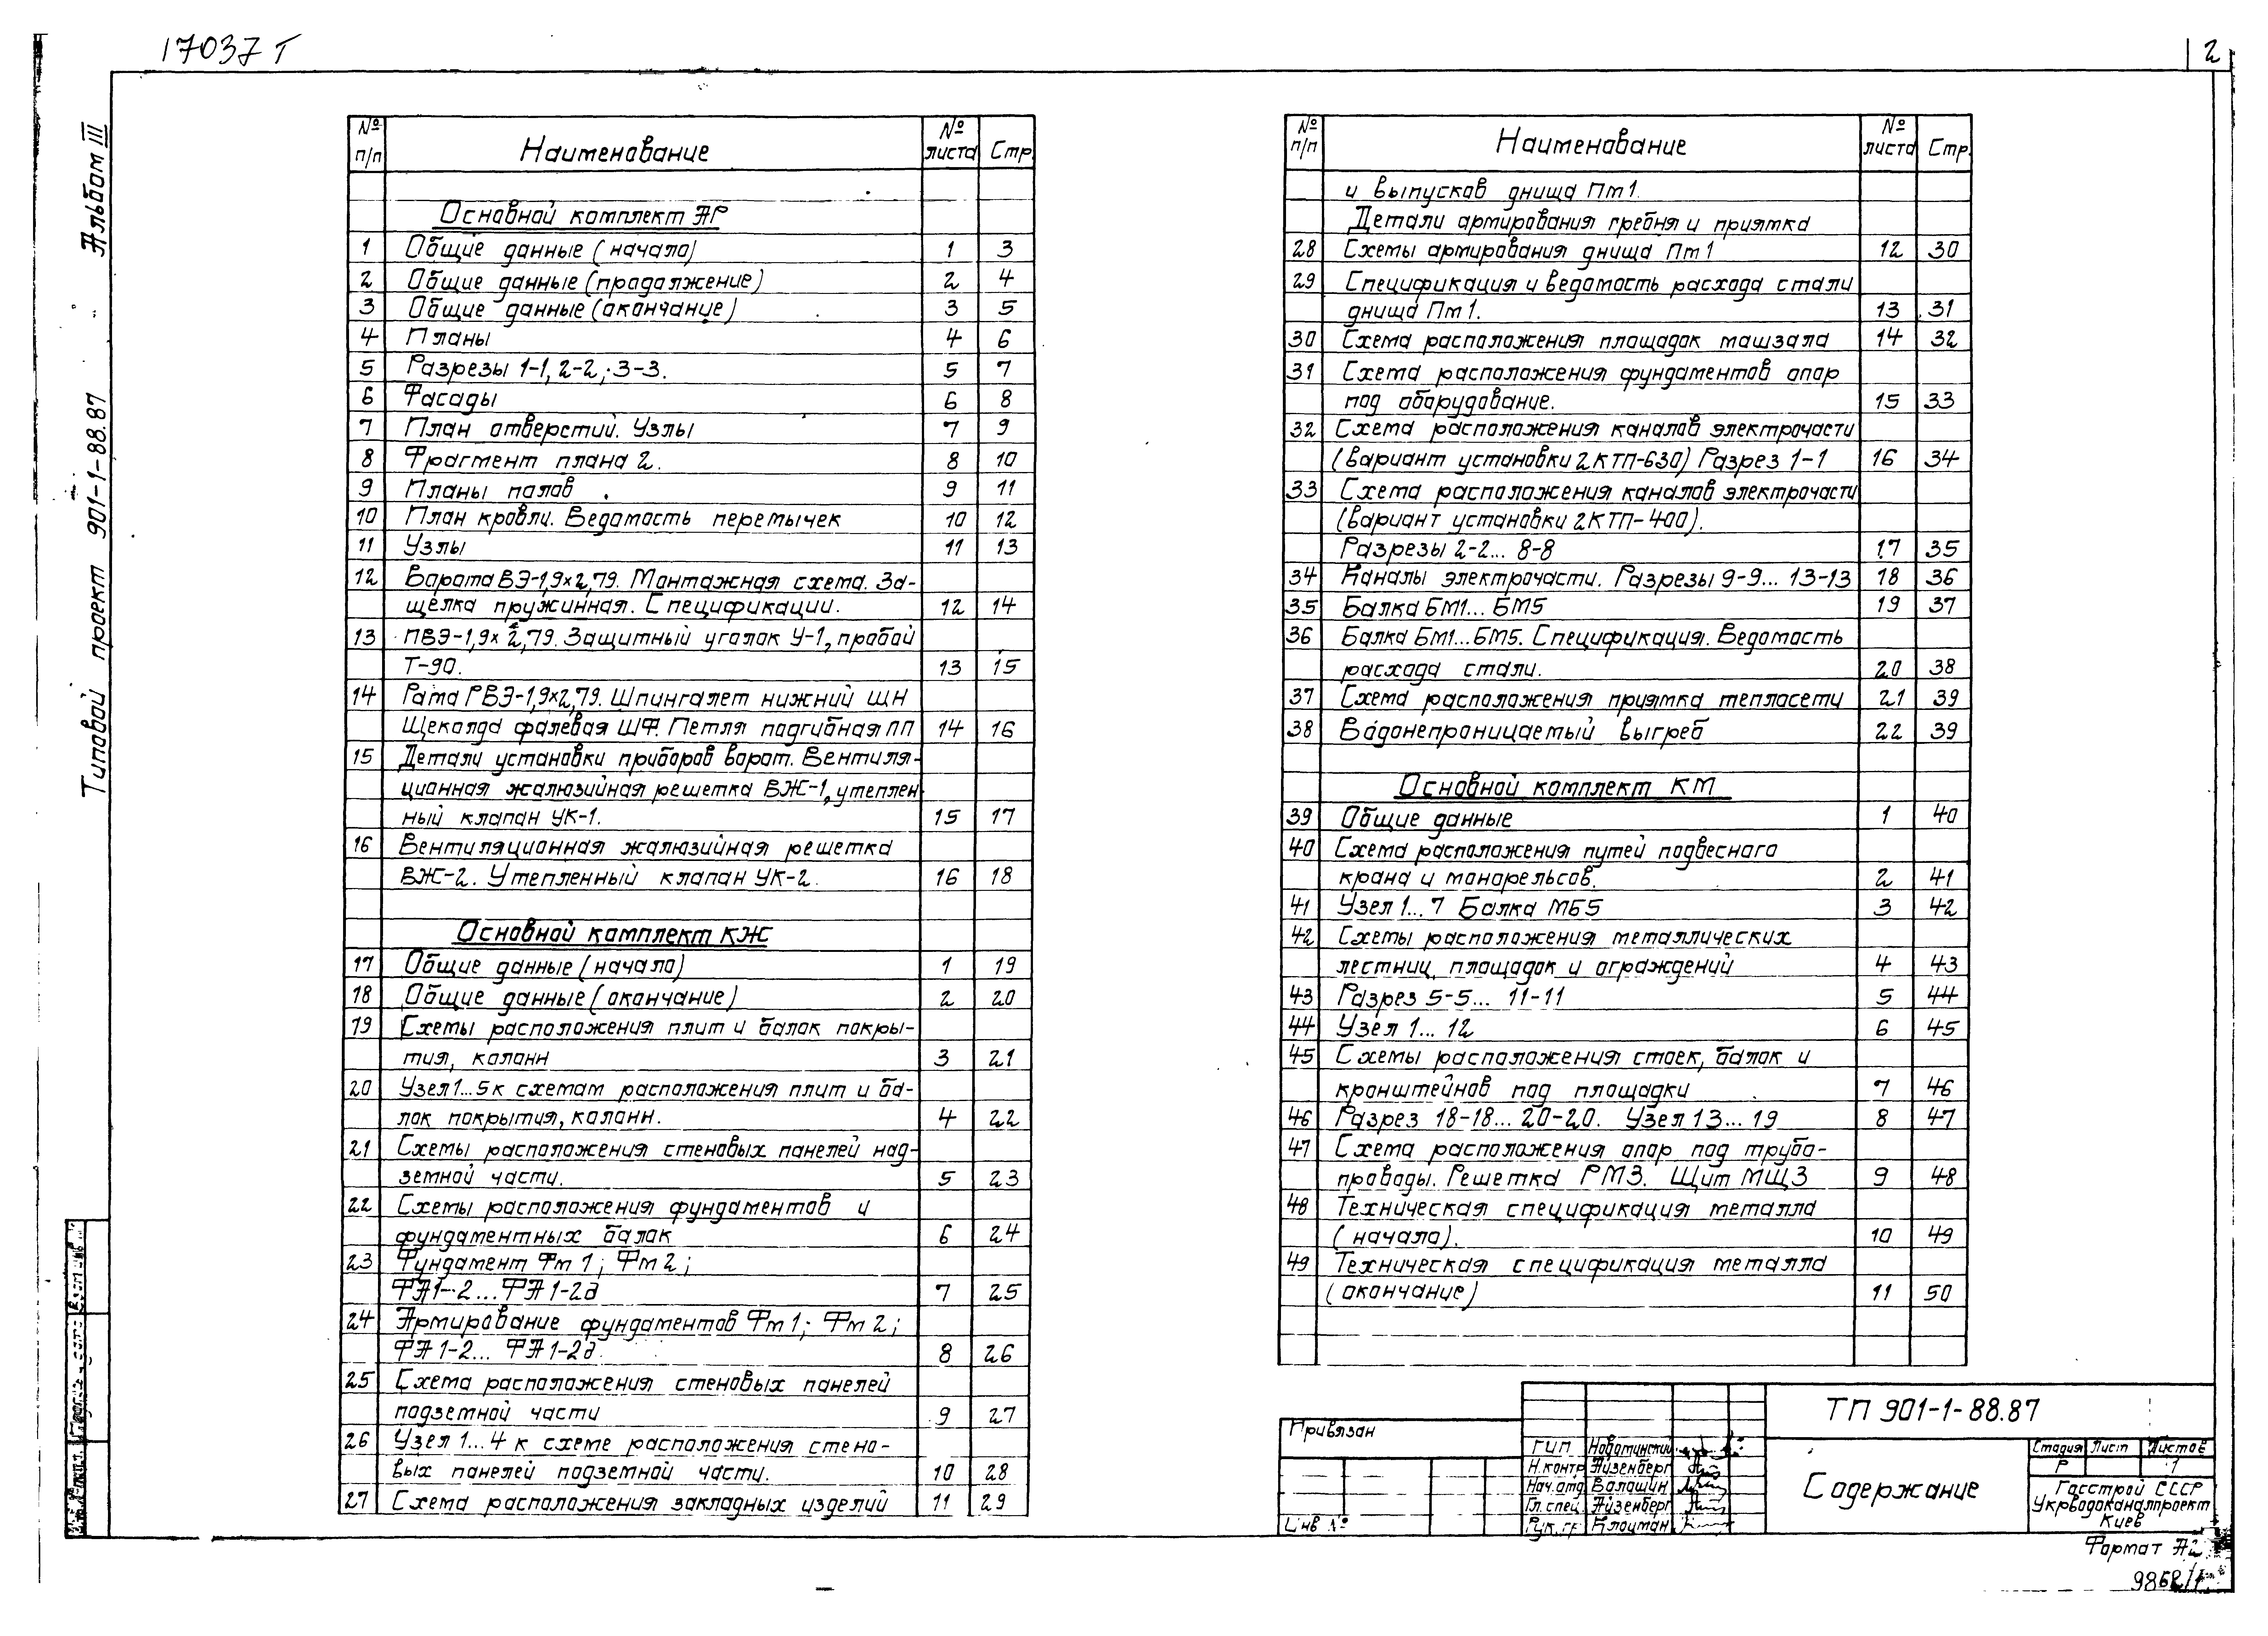 17037 Т
2
Альбом III
Типовой проект 901-1-88.87
№ п/п Наименование № листа Стр.
Основной комплект АР
1 Общие данные (начало) 1 3
2 Общие данные (продолжение) 2 4
3 Общие данные (окончание) 3 5
4 Планы 4 6
5 Разрезы 1-1, 2-2, 3-3. 5 7
6 Фасады 6 8
7 План отверстий. Узлы 7 9
8 Фрагмент плана 2. 8 10
9 Планы полов 9 11
10 План кровли. Ведомость перемычек 10 12
11 Узлы 11 13
12 Ворота ВЭ-1,9х2,79. Монтажная схема. За-
щелка пружинная. Спецификации. 12 14
13 ПВЭ-1,9х2,79. Защитный уголок У-1, пробой
Т-90. 13 15
14 Рама РВЭ-1,9х2,79. Шпингалет нижний ШН
Щеколда фалевая ШФ. Петля подгибная ПП 14 16
15 Детали установки приборов ворот. Вентиля-
ционная жалюзийная решетка ВЖ-1, утеплен-
ный клапан УК-1. 15 17
16 Вентиляционная жалюзийная решетка
ВЖ-2. Утепленный клапан УК-2. 16 18
Основной комплект КЖ
17 Общие данные (начало) 1 19
18 Общие данные (окончание) 2 20
19 Схемы расположения плит и балок покры-
тия, колонн 3 21
20 Узел 1...5 к схемам расположения плит и ба-
лок покрытия, колонн. 4 22
21 Схемы расположения стеновых панелей над-
земной части. 5 23
22 Схемы расположения фундаментов и
фундаментных балок 6 24
23 Фундамент Фм 1; Фм 2;
ФА1-2...ФА1-2д 7 25
24 Армирование фундаментов Фм 1; Фм 2;
ФА1-2... ФА1-2д 8 26
25 Схема расположения стеновых панелей
подземной части 9 27
26 Узел 1...4 к схеме расположения стено-
вых панелей подземной части. 10 28
27 Схема расположения закладных изделий 11 29
№ п/п Наименование № листа Стр.
и выпусков днища Пм 1.
Детали армирования гребня и приямка
28 Схемы армирования днища Пм 1 12 30
29 Спецификация и ведомость расхода стали
днища Пм 1. 13 31
30 Схема расположения площадок машзала 14 32
31 Схема расположения фундаментов опор
под оборудование. 15 33
32 Схема расположения каналов электрочасти
(вариант установки 2КТП-630) Разрез 1-1 16 34
33 Схема расположения каналов электрочасти
(вариант установки 2КТП-400).
Разрезы 2-2... 8-8 17 35
34 Каналы электрочасти. Разрезы 9-9... 13-13 18 36
35 Балка БМ1... БМ5 19 37
36 Балка БМ1...БМ5. Спецификация. Ведомость
расхода стали. 20 38
37 Схема расположения приямка теплосети 21 39
38 Водонепроницаемый выгреб 22 39
Основной комплект КМ
39 Общие данные 1 40
40 Схема расположения путей подвесного
крана и монорельсов. 2 41
41 Узел 1...7 Балка МБ5 3 42
42 Схемы расположения металлических
лестниц, площадок и ограждений 4 43
43 Разрез 5-5... 11-11 5 44
44 Узел 1... 12 6 45
45 Схемы расположения стоек, балок и
кронштейнов под площадки 7 46
46 Разрез 18-18... 20-20. Узел 13... 19 8 47
47 Схема расположения опор под трубо-
проводы. Решетка РМ3. Щит МЩ3 9 48
48 Техническая спецификация металла
(начало). 10 49
49 Техническая спецификация металла
(окончание) 11 50
Привязан
Инв №
ГИП Новотинский
Н.контр Айзенберг
Нач.отд Волошин
Гл.спец. Айзенберг
Рук.гр. Клоцман
ТП 901-1-88.87
Содержание
Стадия Лист Листов
Р 1
Госстрой СССР
Укрводоканалпроект
Киев
Формат А2